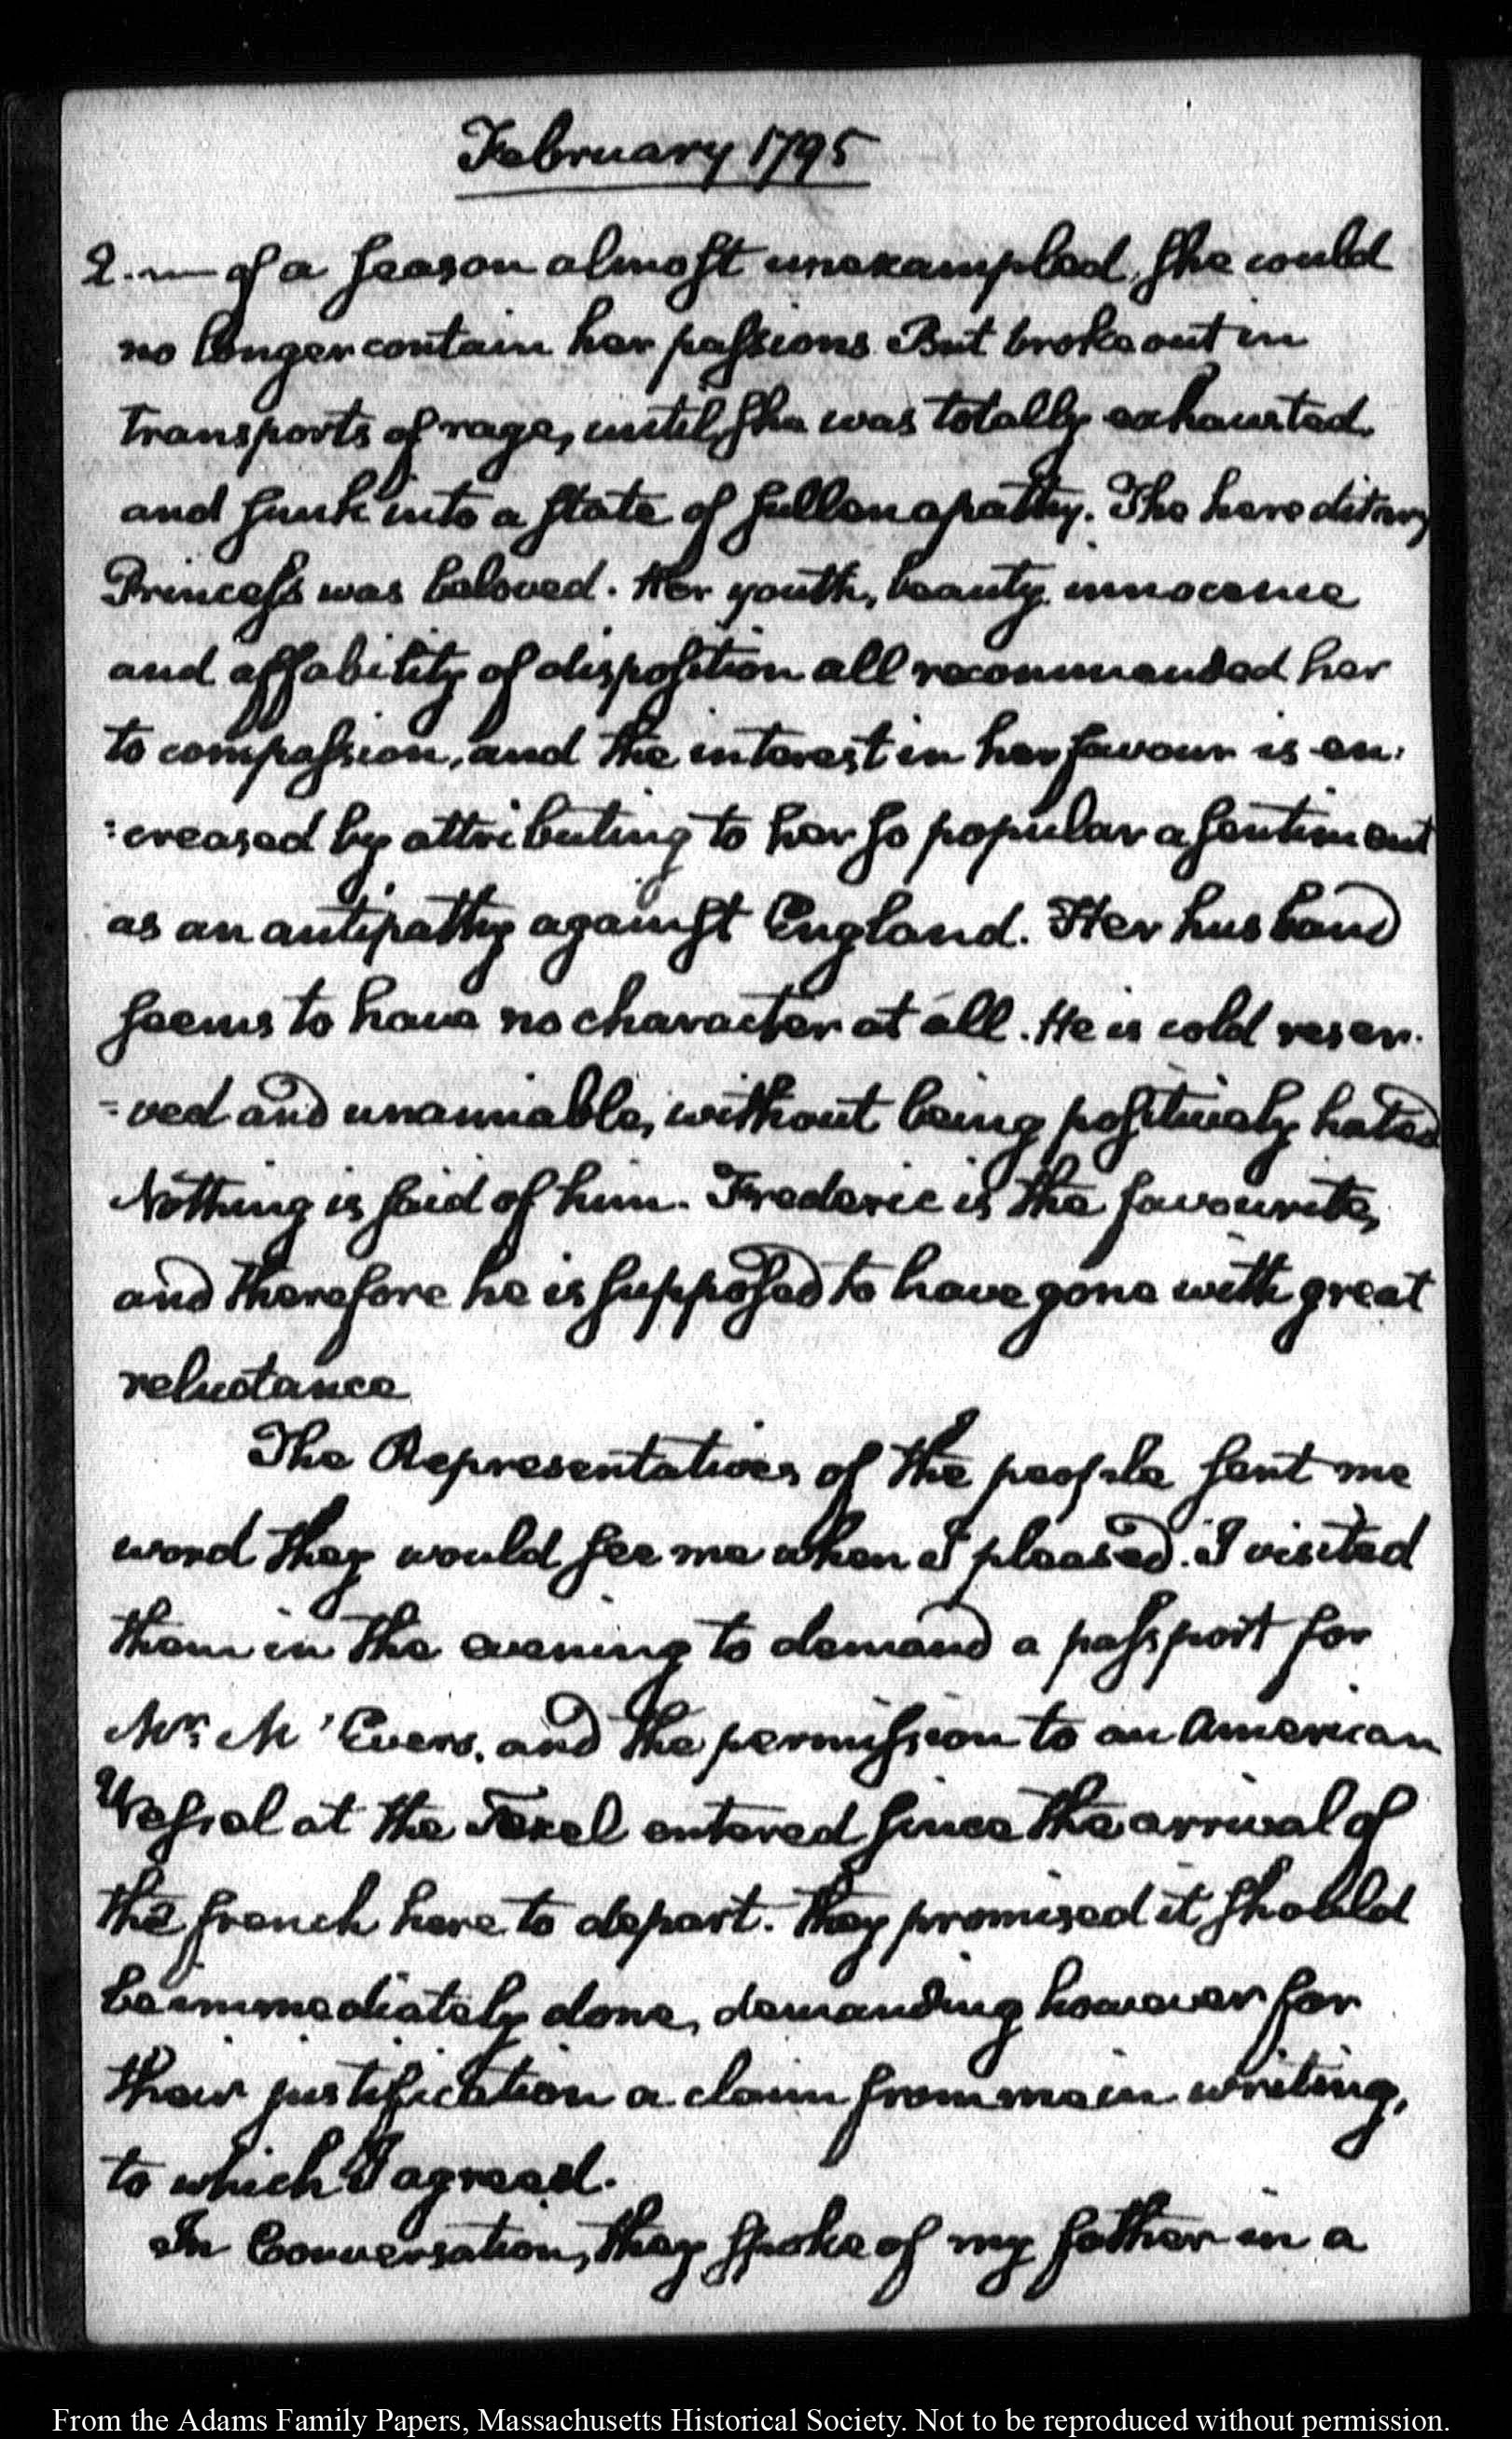 February 1795
2. — of a season almost unexampled, she could
no longer contain her passions. But broke out in
transports of rage, until she was totally exhausted,
and sunk into a state of sullen apathy. The hereditary
Princess was beloved. Her youth, beauty, innocence
and affability of disposition all recommended her
to compassion, and the interest in her favour is en:
:creased by attributing to her so popular a sentiment
as an antipathy against England. Her husband
seems to have no character at all. He is cold reser-
=ved and unamiable, without being positively hated
Nothing is said of him. Frederic is the favourite,
and therefore he is supposed to have gone with great
reluctance
The Representatives of the people sent me
word they would see me when I pleased. I visited
them in the evening to demand a passport for
Mr. M'Evers, and the permission to an American
Vessel at the Texel entered since the arrival of
the french here to depart. They promised it should
be immediately done, demanding however for
their justification a claim from me in writing,
to which I agreed.
In Conversation, they spoke of my father in a
From the Adams Family Papers, Massachusetts Historical Society. Not to be reproduced without permission.